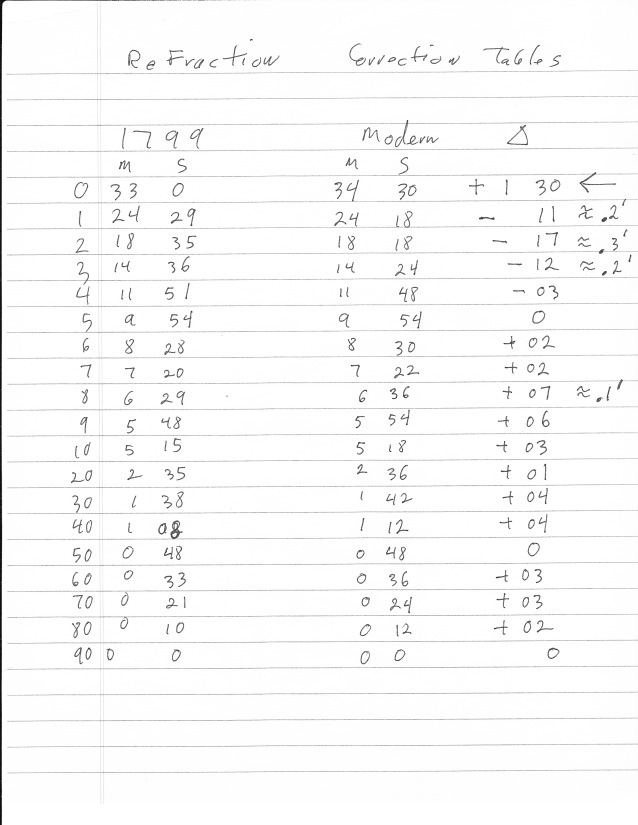 Refraction Correction Tables
1799 Modern Δ
M S M S
0 33 0 34 30 + 1 30 ←
1 24 29 24 18 - 11 ≈ .2'
2 18 35 18 18 - 17 ≈ .3'
3 14 36 14 24 - 12 ≈ .2'
4 11 51 11 48 - 03
5 9 54 9 54 0
6 8 28 8 30 + 02
7 7 20 7 22 + 02
8 6 29 6 36 + 07 ≈ .1'
9 5 48 5 54 + 06
10 5 15 5 18 + 03
20 2 35 2 36 + 01
30 1 38 1 42 + 04
40 1 08 1 12 + 04
50 0 48 0 48 0
60 0 33 0 36 + 03
70 0 21 0 24 + 03
80 0 10 0 12 + 02
90 0 0 0 0 0